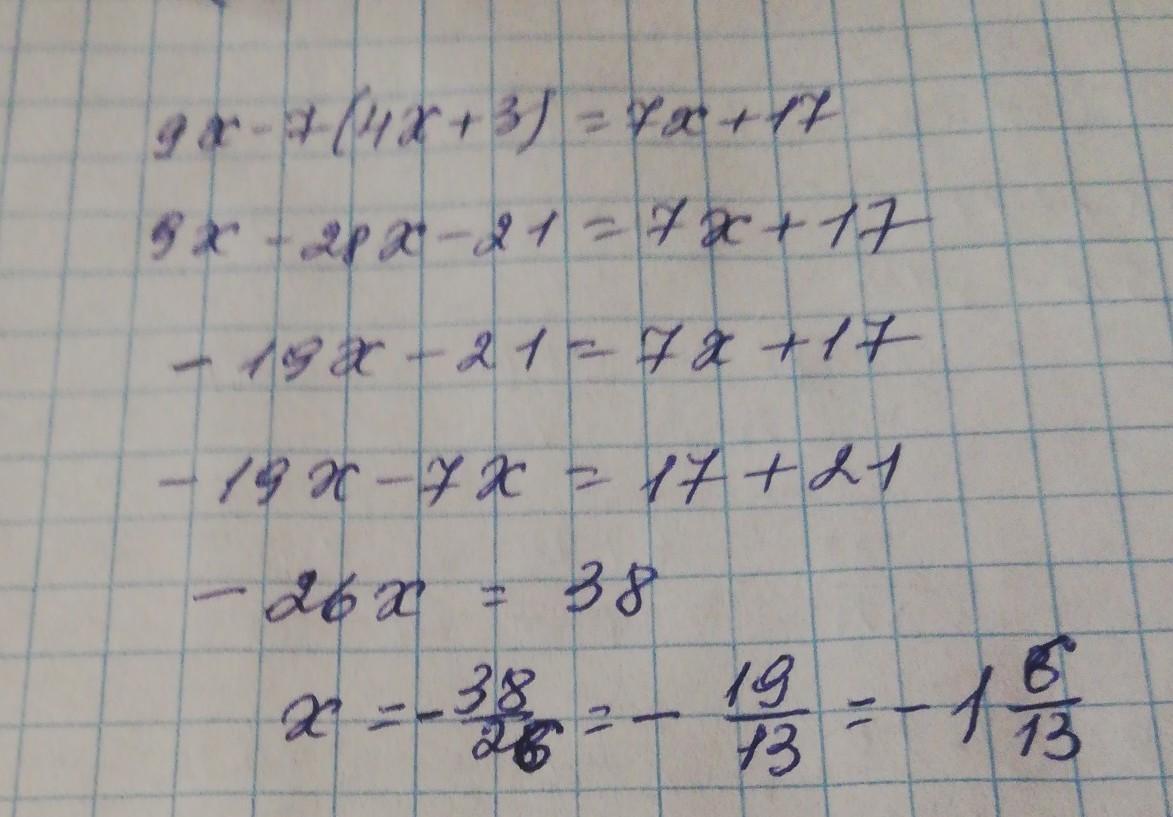 9x - 7(4x + 3) = 7x + 17
9x - 28x - 21 = 7x + 17
- 19x - 21 = 7x + 17
- 19x - 7x = 17 + 21
- 26x = 38
x = - 38/26 = - 19/13 = - 1 6/13